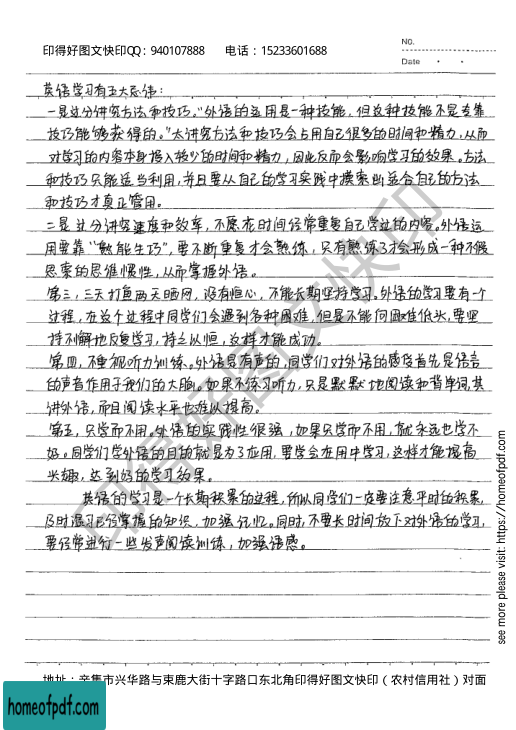 印得好图文快印QQ：940107888 电话：15233601688
NO.
Date
英语学习有五大忌讳：
一是过分讲究方法和技巧。"外语的运用是一种技能，但这种技能不是专靠
技巧能够获得的。"太讲究方法和技巧会占用自己很多的时间和精力，从而
对学习的内容本身投入较少的时间和精力，因此反而会影响学习的效果。方法
和技巧只能适当利用，并且要从自己的学习实践中摸索出适合自己的方法
和技巧才真正管用。
二是过分讲究速度和效率，不愿花时间经常重复自己学过的内容。外语运
用要靠"熟能生巧"，要不断重复才会熟练，只有熟练了才会形成一种不假
思索的思维惯性，从而掌握外语。
第三，三天打鱼两天晒网，没有恒心，不能长期坚持学习。外语的学习要有一个
过程，在这个过程中同学们会遇到各种困难，但是不能向困难低头，要坚
持不懈地反复学习，持之以恒，这样才能成功。
第四，不重视听力训练。外语是有声的，同学们对外语的感受首先是语言
的声音作用于我们的大脑。如果不练习听力，只是默默地阅读和背单词，其
讲外语，而且阅读水平也难以提高。
第五，只学而不用。外语的实践性很强，如果只学而不用，就永远也学不
好。同学们学外语的目的就是为了应用，要学会在用中学习，这样才能提高
兴趣，达到好的学习效果。
英语的学习是一个长期积累的过程，所以同学们一定要注意平时的积累，
及时温习已经掌握的知识，加强记忆。同时，不要长时间放下对外语的学习，
要经常进行一些发声阅读训练，加强语感。
印得好图文快印
see more please visit: https://homeofpdf.com
地址：辛集市兴华路与束鹿大街十字路口东北角印得好图文快印（农村信用社）对面
homeofpdf.com